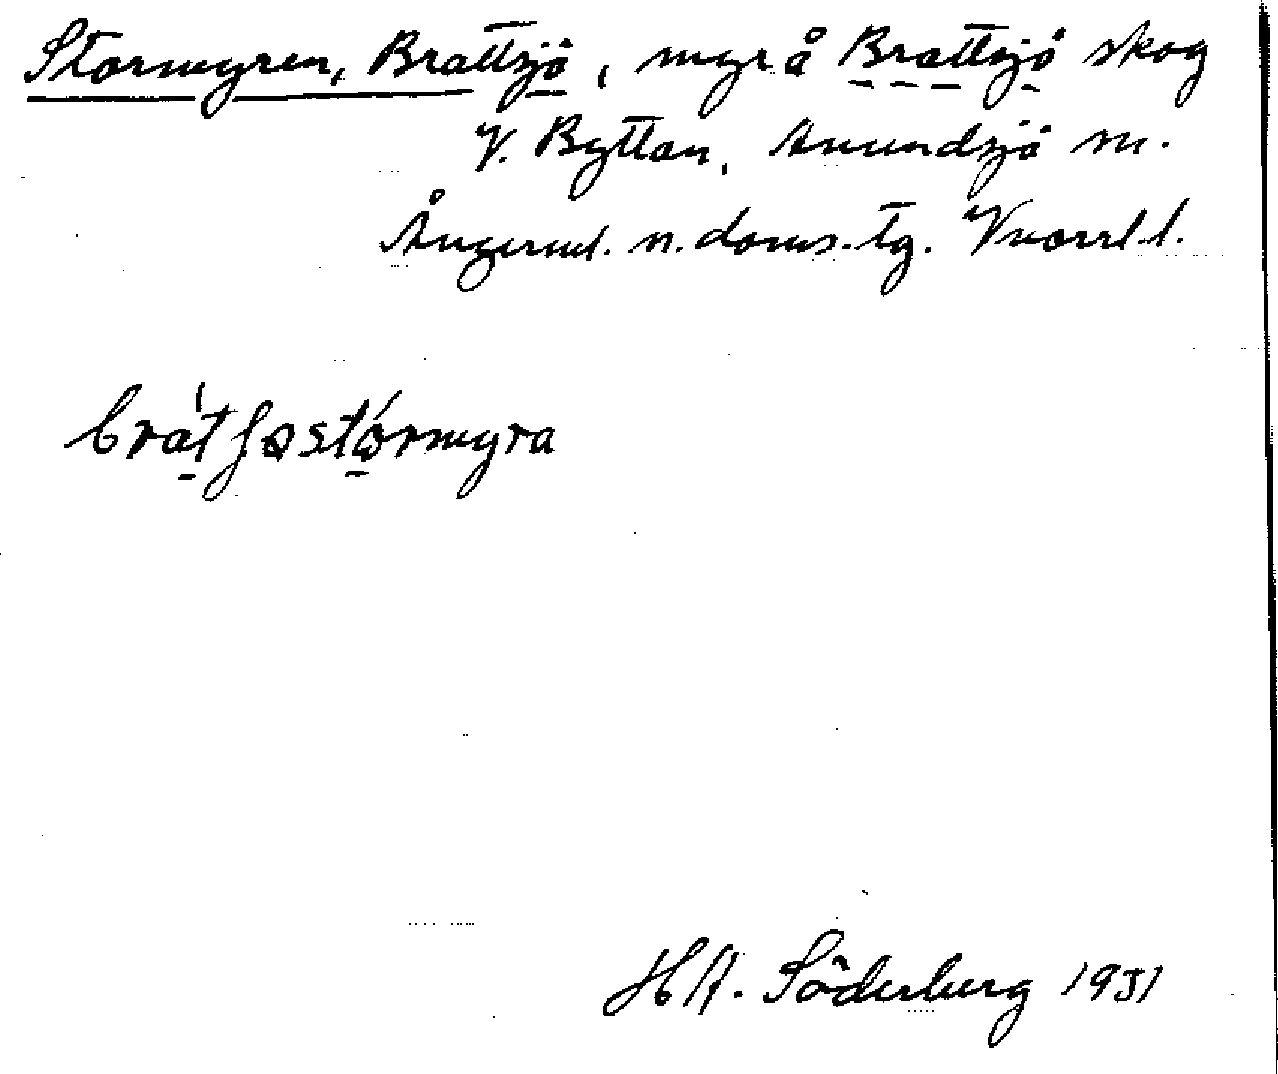 Stormyren, Brattsjö, myr å Brattsjö skog
V. Byttan, Anundsjö sn.
Ångerml. n. doms.tg.
bratʃøstórmyra
H A. Söderberg 1931